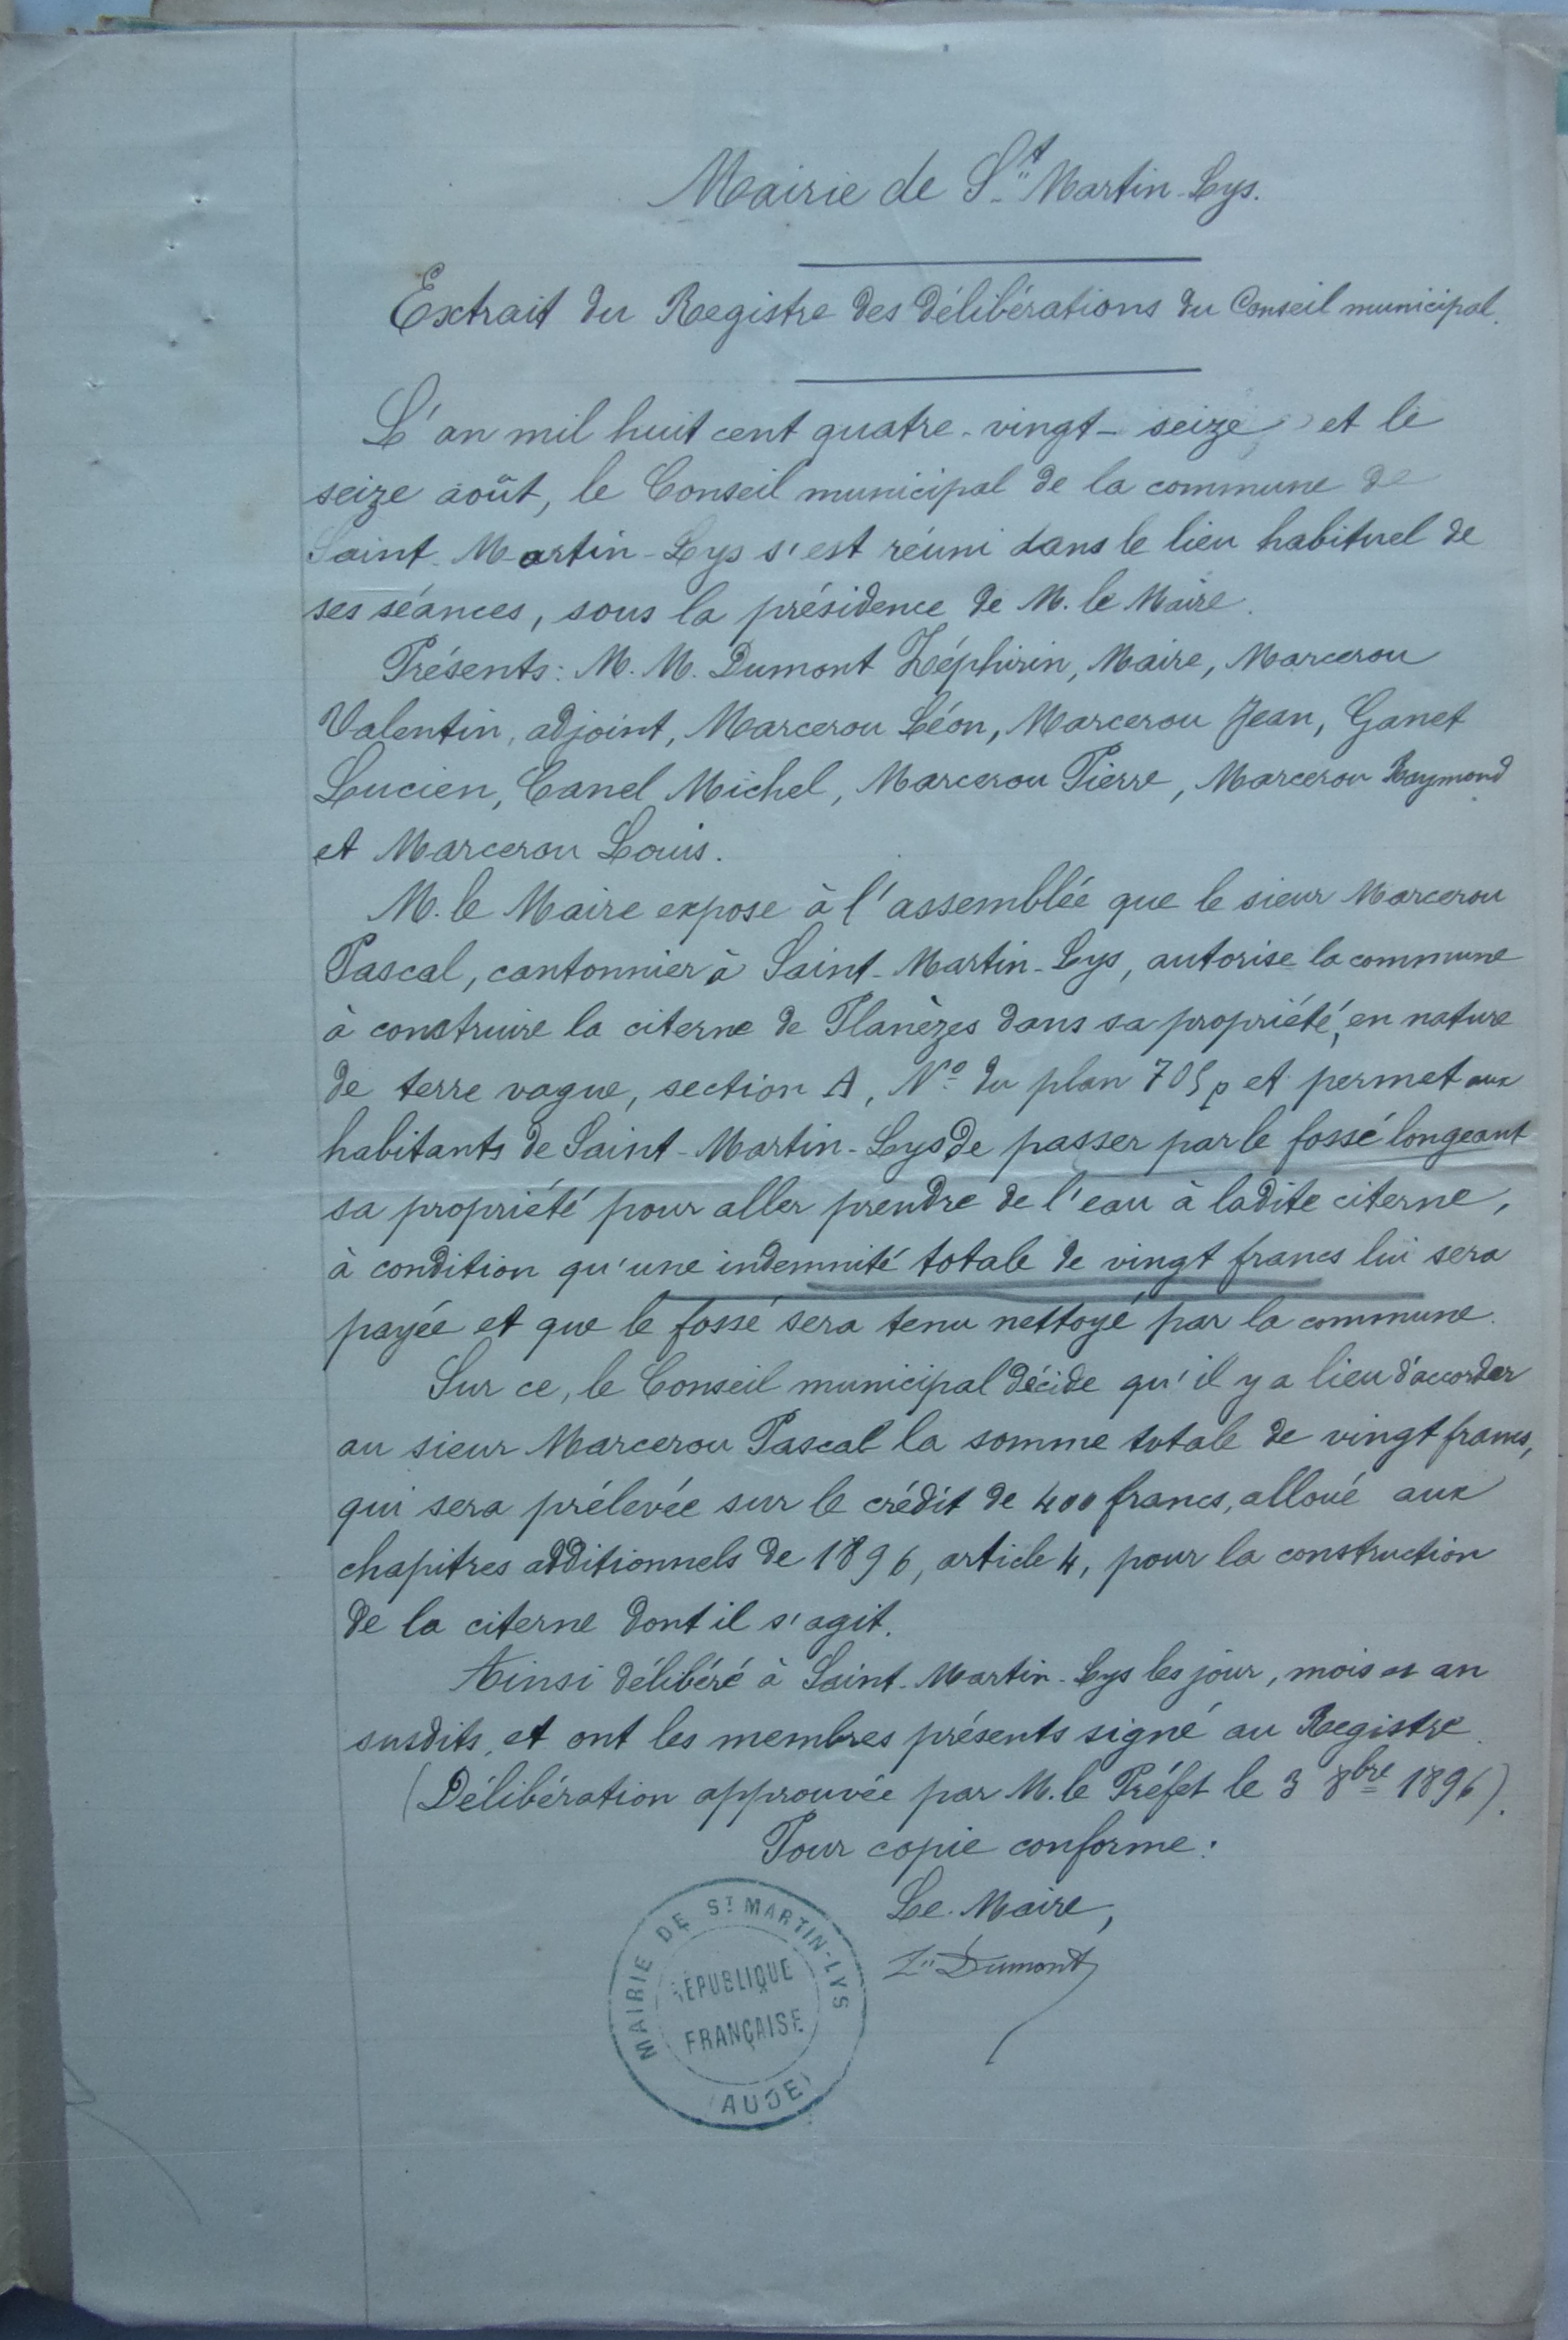 Mairie de St Martin-Lys.
Extrait du Registre des délibérations du Conseil municipal.
L'an mil huit cent quatre-vingt-seize, et le
seize août, le Conseil municipal de la commune de
Saint-Martin-Lys s'est réuni dans le lieu habituel de
ses séances, sous la présidence de M. le Maire.
Présents: M. M. Dumont Zéphirin, Maire, Marcerou
Valentin, adjoint, Marcerou Léon, Marcerou Jean, Ganet
Lucien, Canel Michel, Marcerou Pierre, Marcerou Raymond
et Marcerou Louis.
M. le Maire expose à l'assemblée que le sieur Marcerou
Pascal, cantonnier à Saint-Martin-Lys, autorise la commune
à construire la citerne de Planèzes dans sa propriété, en nature
de terre vague, section A, No du plan 705p et permet aux
habitants de Saint-Martin-Lys de passer par le fossé longeant
sa propriété pour aller prendre de l'eau à ladite citerne,
à condition qu'une indemnité totale de vingt francs lui sera
payée et que le fossé sera tenu nettoyé par la commune.
Sur ce, le Conseil municipal décide qu'il y a lieu d'accorder
au sieur Marcerou Pascal la somme totale de vingt francs,
qui sera prélevée sur le crédit de 400 francs, alloué aux
chapitres additionnels de 1896, article 4, pour la construction
de la citerne dont il s'agit.
Ainsi délibéré à Saint-Martin-Lys les jour, mois et an
susdits, et ont les membres présents signé au Registre.
(Délibération approuvée par M. le Préfet le 3 8bre 1896).
Pour copie conforme:
Le Maire,
Zin Dumont
MAIRIE DE ST MARTIN-LYS
RÉPUBLIQUE
FRANÇAISE
(AUDE)